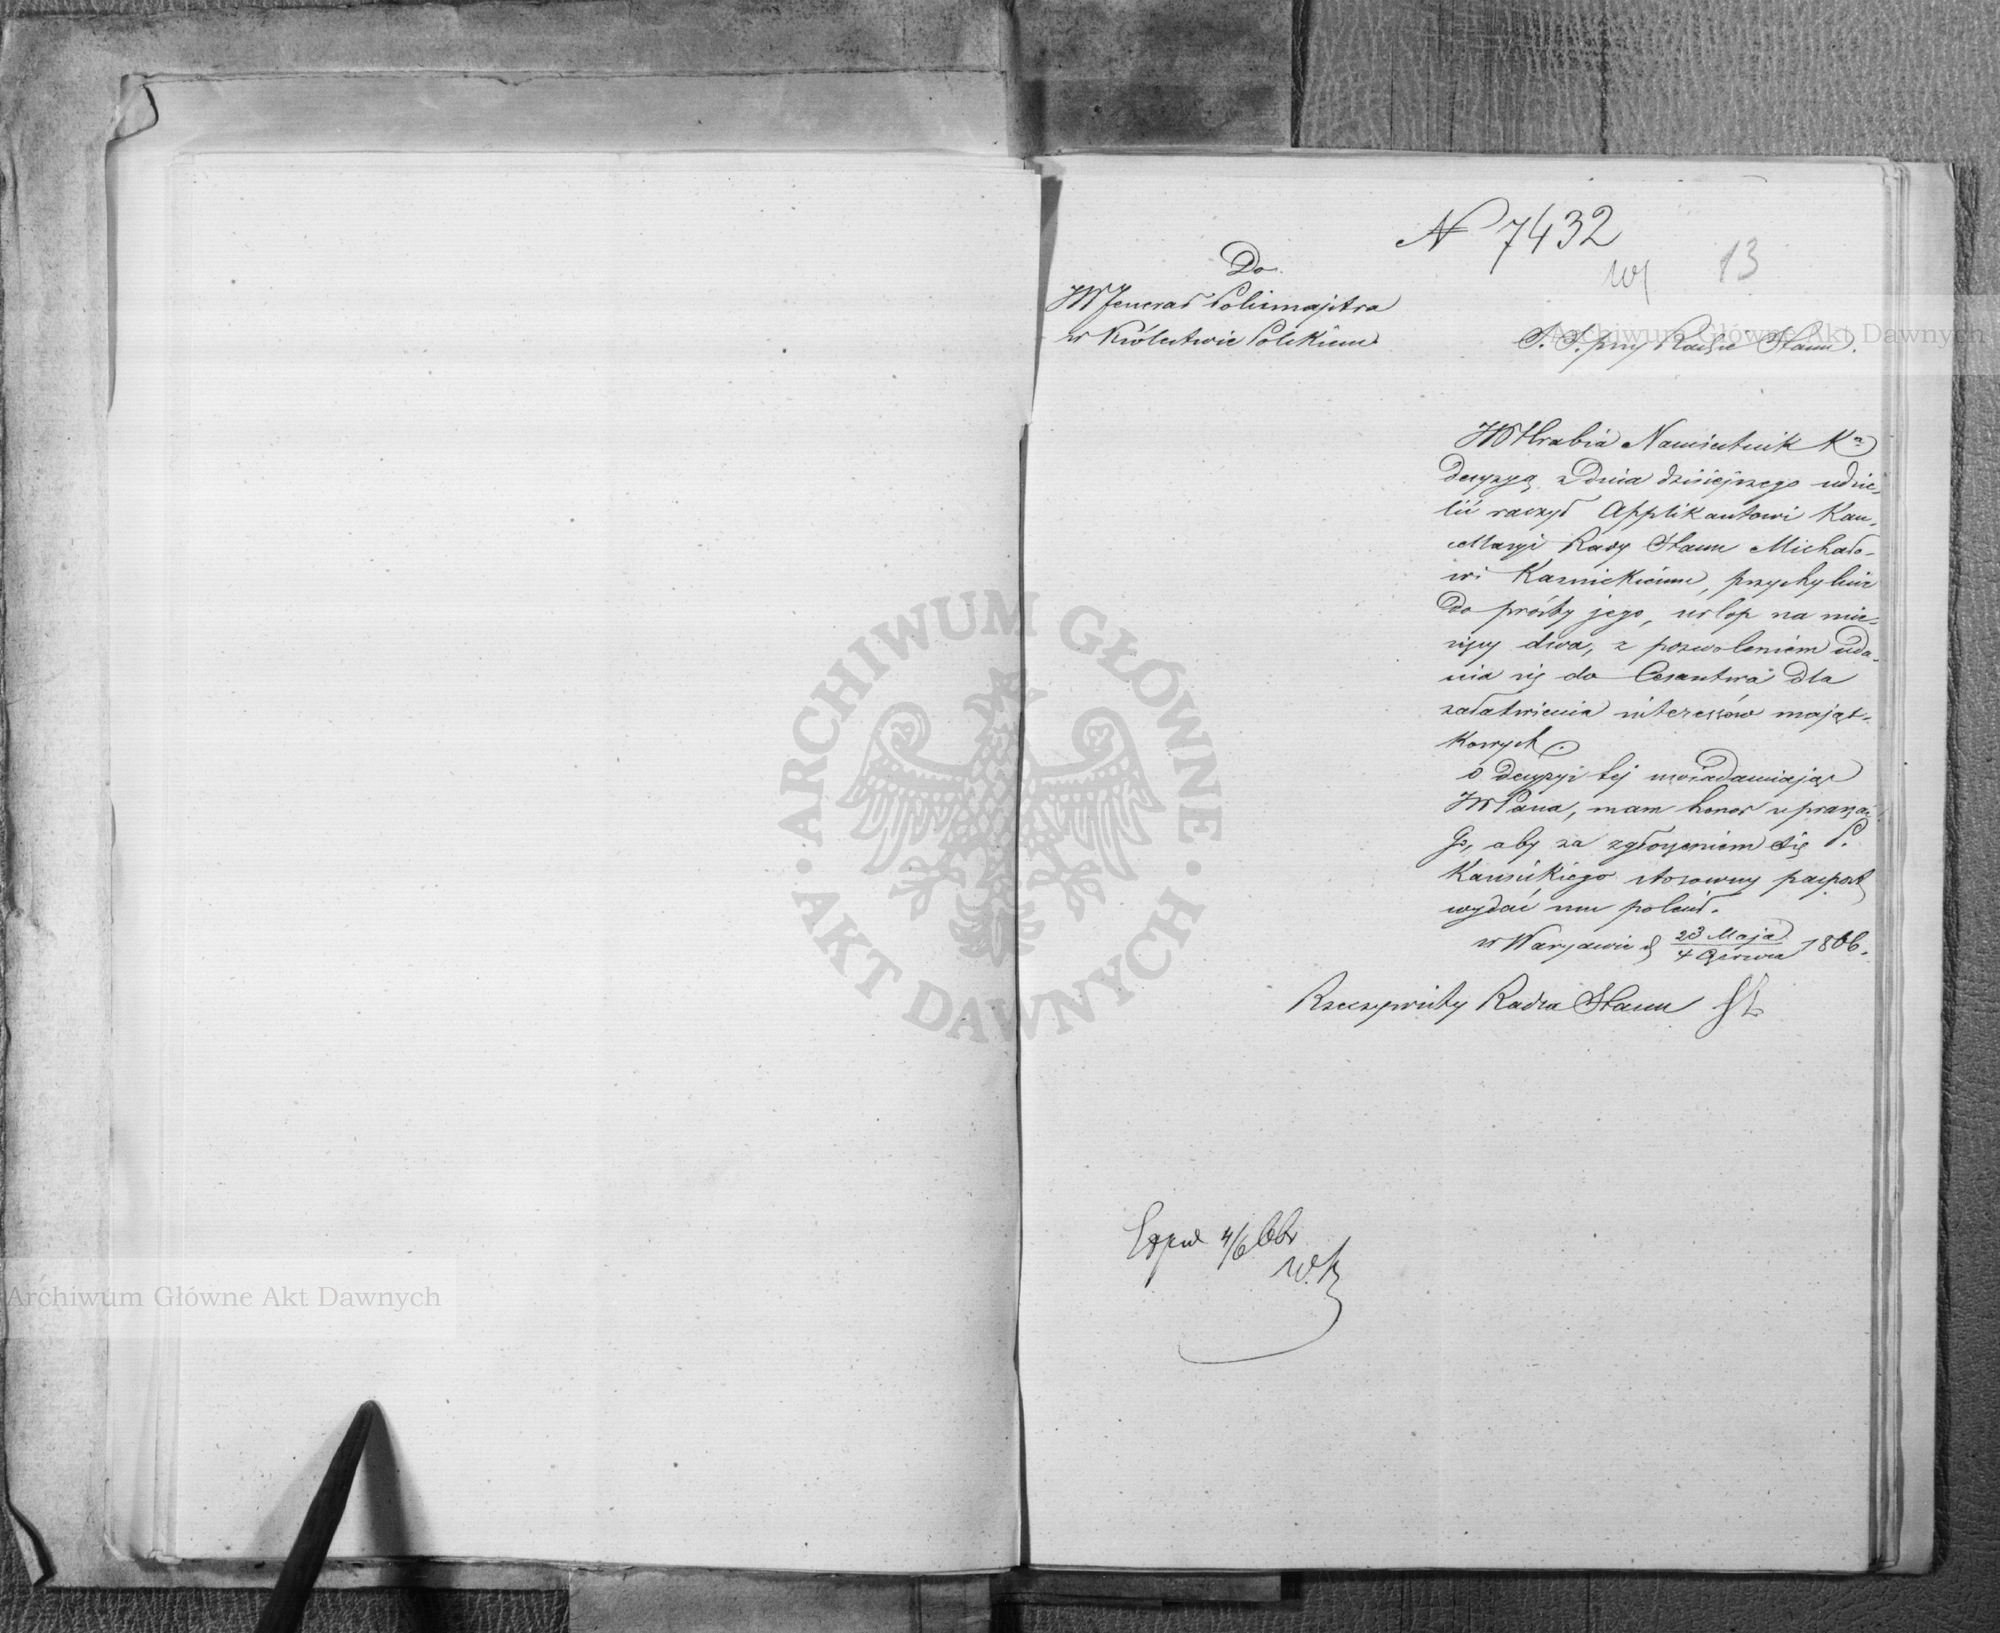 N 7432
13
Do
JW Jenerał Policmajstra
w Królestwie Polskiem
S. S. przy Radzie Stanu.
JW Hrabia Namiestnik K
decyzyą z dnia dzisiejszego udzie-
lić raczył Applikantowi Kan-
cellaryi Rady Stanu Michało-
wi Karnickiemu, przychylnie
do prośby jego, urlop na mie-
sięcy dwa, z pozwoleniem uda-
nia się do Cesarstwa dla
załatwienia interessów mająt-
kowych.
O decyzyi tej uwiadamiając
JW Pana, mam honor upraszać
Go, aby za zgłoszeniem się P.
Karnickiego stosowny paszport
wydać mu polecił.
w Warszawie d 23 Maja / 4 Czerwca 1866.
Rzeczywisty Radca Stanu
Exped 4/6 66
W. K
ARCHIWUM GŁÓWNE
AKT DAWNYCH
Archiwum Główne Akt Dawnych
Archiwum Główne Akt Dawnych